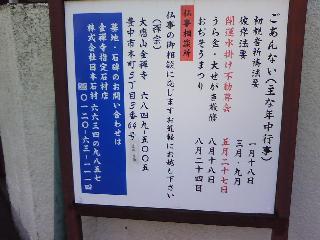 ごあんない(主な年中行事)
初観音祈祷法要 一月十八日
彼岸法要 三月・九月
開運水掛け不動尊会 五月二十七日
うら盆・大せがき廻修 八月十八日
おじぞうまつり 八月二十四日
仏事相談所
仏事の御相談に応じますお気軽にお越し下さい
(禅宗)
大應山金禅寺 六八四九ー五〇〇五
豊中市本町5丁目3番64号
墓地・石碑のお問い合わせは
金禅寺指定石材店 六六三四の九八五七
株式会社日本石材 〇一二〇ー六三ー一一四一